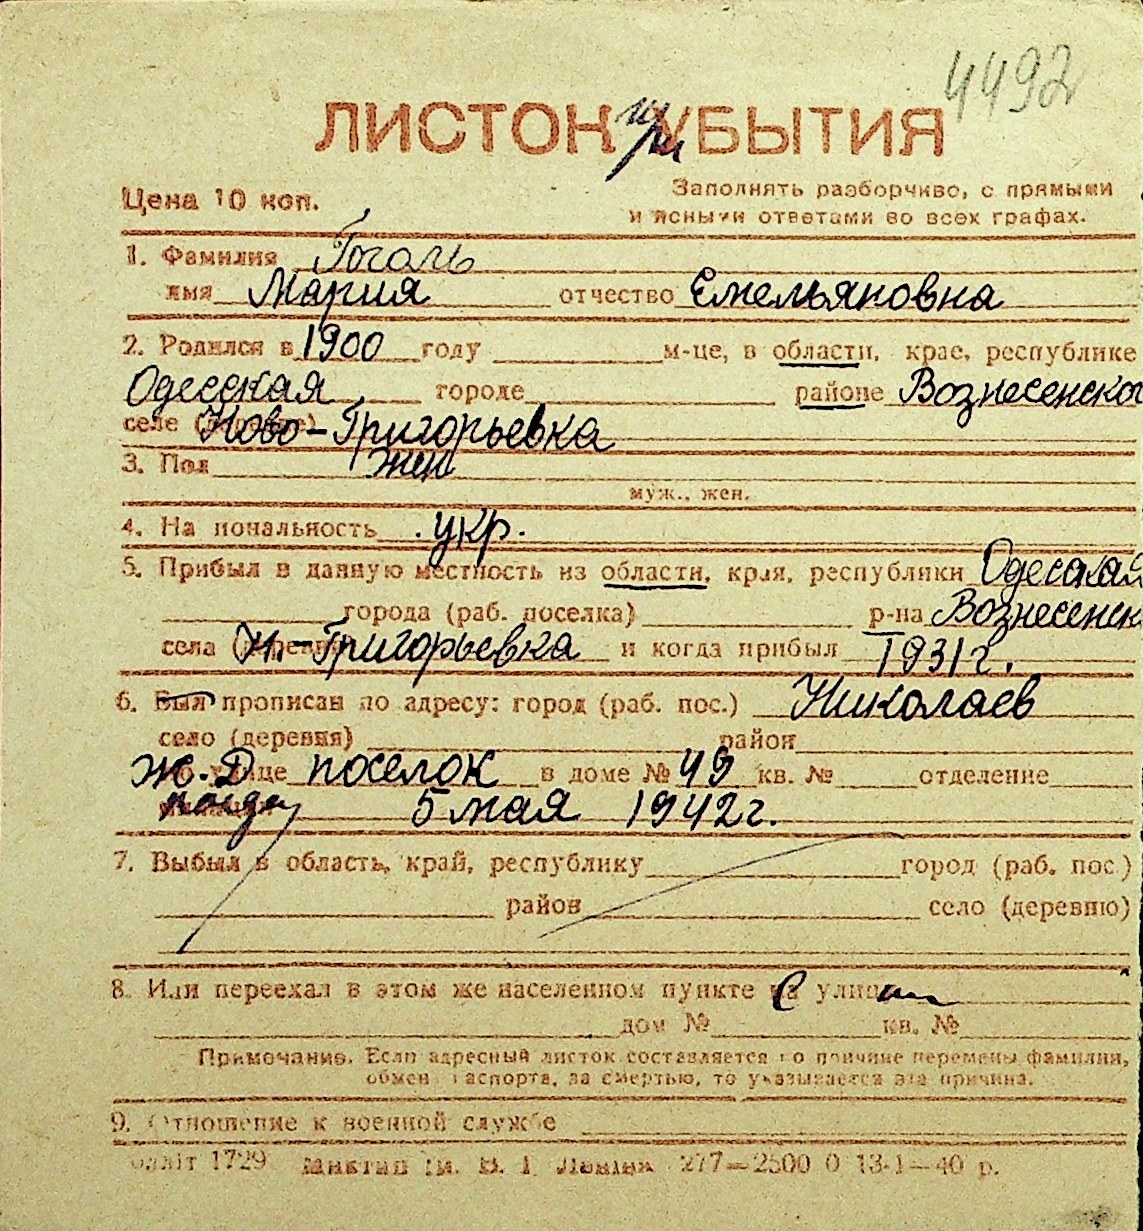 4492
ЛИСТОК при УБЫТИЯ
Цена 10 коп.
Заполнять разборчиво, с прямыми
и ясными ответами во всех графах.
1. Фамилия Гоголь
имя Мария отчество Емельяновна
2. Родился в 1900 году м-це, в области, крае, республике
Одесская городе районе Вознесенског
селе (деревне) Ново-Григорьевка
3. Пол жен
муж., жен.
4. Национальность укр.
5. Прибыл в данную местность из области, края, республики Одесской
города (раб. поселка) р-на Вознесенск
села Н.-Григорьевка и когда прибыл 1931г.
6. Был прописан по адресу: город (раб. пос.) Николаев
село (деревня) район
ж.Д улице поселок в доме № 49 кв. № отделение
5 мая 1942г.
7. Выбыл в область, край, республику город (раб. пос.)
район село (деревню)
8. Или переехал в этом же населенном пункте с улицы
дом № кв. №
Примечание. Если адресный листок составляется по причине перемены фамилии,
обмен паспорта, за смертью, то указывается эта причина.
9. Отношение к военной службе
1729 им. В. І Леніна 277—2500 0 13-1—40 р.